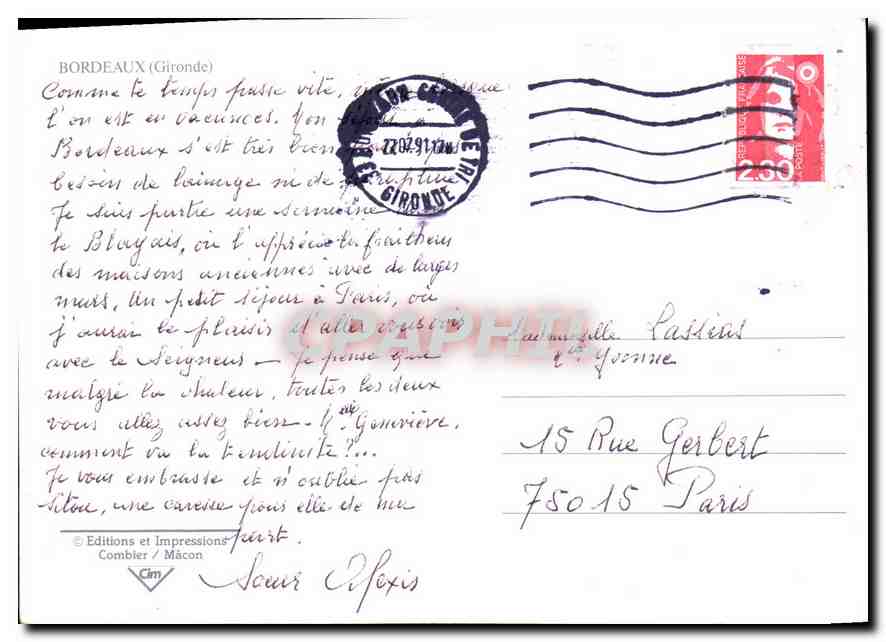 BORDEAUX (Gironde)
Comme te temps passe vite, lorsque
l'on est en vacances. Mon séjour à
Bordeaux s'est très bien pas
besoin de lainage ni de
Je suis partie une semaine
le Blayais, où l'apprécie la fraîcheur
des maisons anciennes avec de larges
murs. Un petit séjour à Paris, où
j'aurai le plaisir d'aller vous voir
avec le Seigneur - Je pense que
malgré la chaleur, toutes les deux
vous allez assez bien - Melle Geneviève,
comment va la tendinite ?...
Je vous embrasse et n'oublie pas
Sitou, une caresse pour elle de ma
part.
Soeur Alexis
© Editions et Impressions
Combier / Mâcon
Cim
33 BORDEAUX CENTRE DE TRI
22 07 91 17H
GIRONDE
REPUBLIQUE FRANÇAISE
2.30
LA POSTE
Mademoiselle Cassius
Yvonne
15 Rue Gerbert
75015 Paris
CPAPHIL